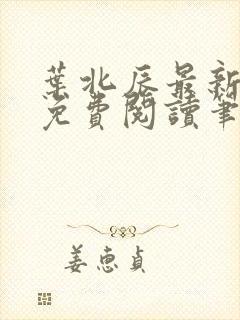 葉北辰最新
免費閱讀筆
姜惠貞